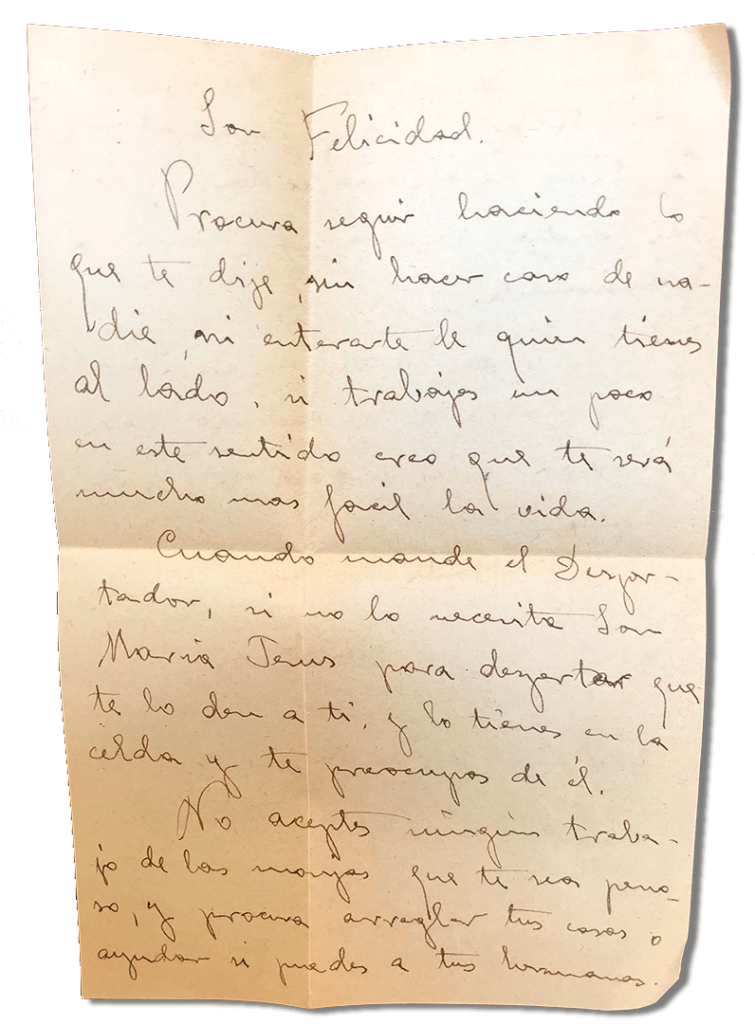 Sor Felicidad.
Procura seguir haciendo lo
que te dije, sin hacer caso de na-
die, ni enterarte de quien tienes
al lado, si trabajas un poco
en este sentido creo que te será
mucho mas facil la vida.
Cuando mande el Desper-
tador, si no lo necesita Sor
Maria Jesus para despertar que
te lo den a ti, y lo tienes en la
celda y te preocupas de él.
No aceptes ningún traba-
jo de las monjas que te sea peno-
so, y procura arreglar tus cosas o
ayudar si puedes a tus hermanas.